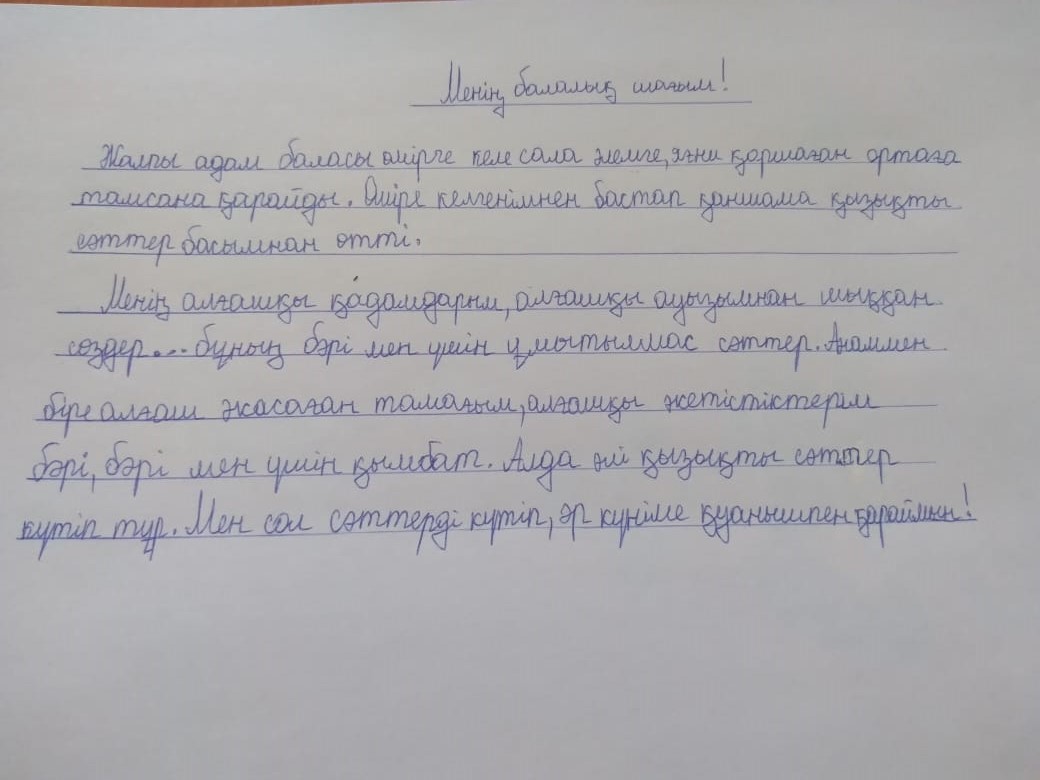 Менің балалық шағым!
Жалпы адам баласы өмірге келе сала әлемге, яғни қоршаған ортаға
тамсана қарайды. Өмірге келгенімнен бастап қаншама қызықты
сәттер басымнан өтті.
Менің алғашқы қадамдарым, алғашқы ауызымнан шыққан
сөздер... бұның бәрі мен үшін ұмытылмас сәттер. Анаммен
бірге алғаш жасаған тамағым, алғашқы жетістіктерім
бәрі, бәрі мен үшін қымбат. Алда әлі қызықты сәттер
күтіп тұр. Мен сол сәттерді күтіп, әр күніме қуанышпен қараймын!